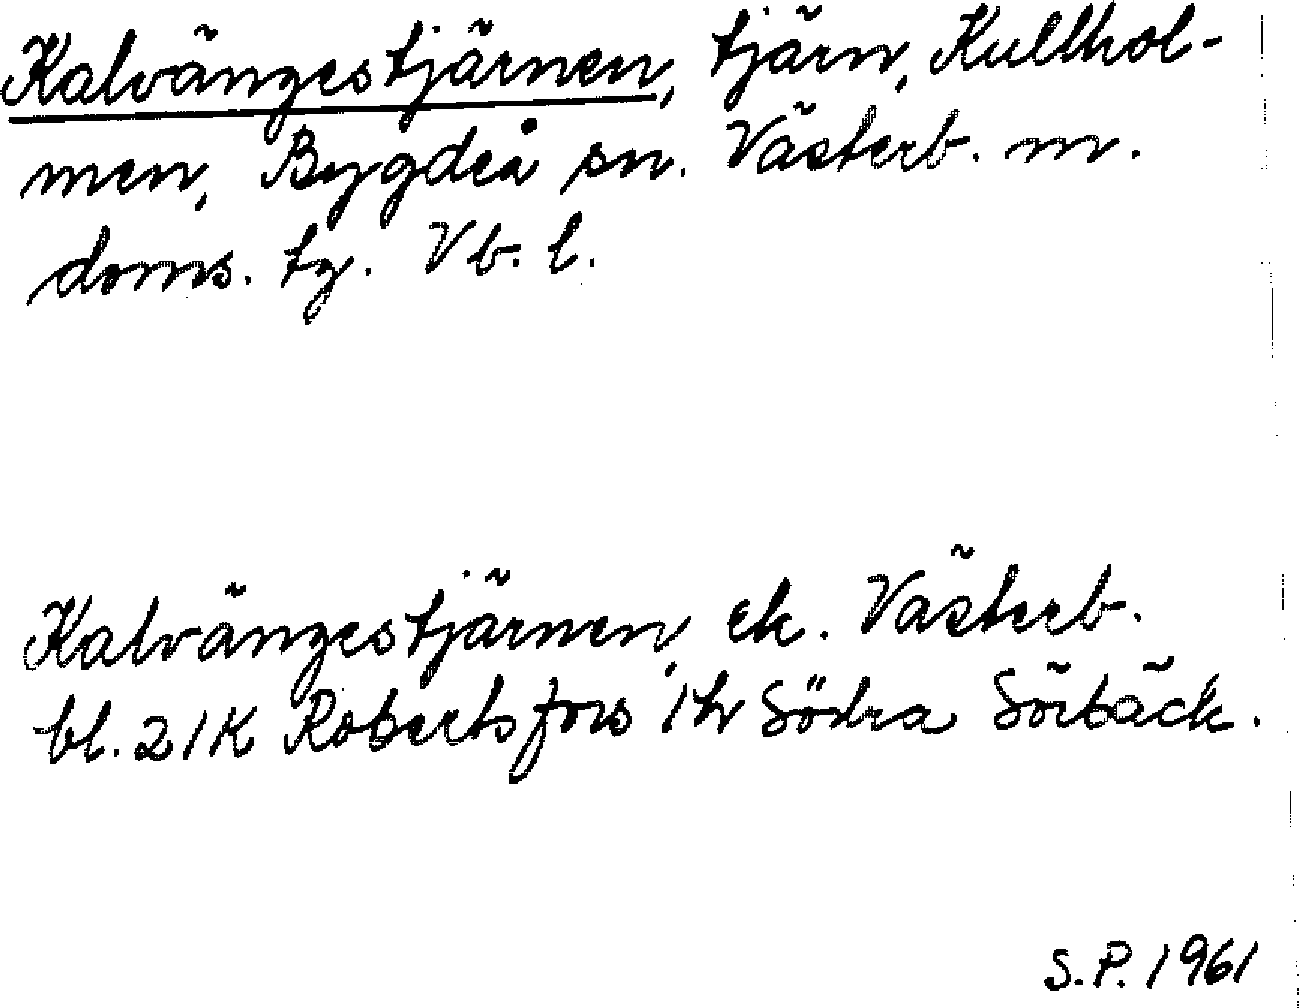 Kalvängestjärnen, tjärn, Kullhol-
men, Bygdeå sn. Västerb. m.
doms. tg. Vb. l.
Kalvängestjärnen, ek. Västerb.
bl. 21K Robertsfors 1 hr Södra Sörbäck.
S.P. 1961